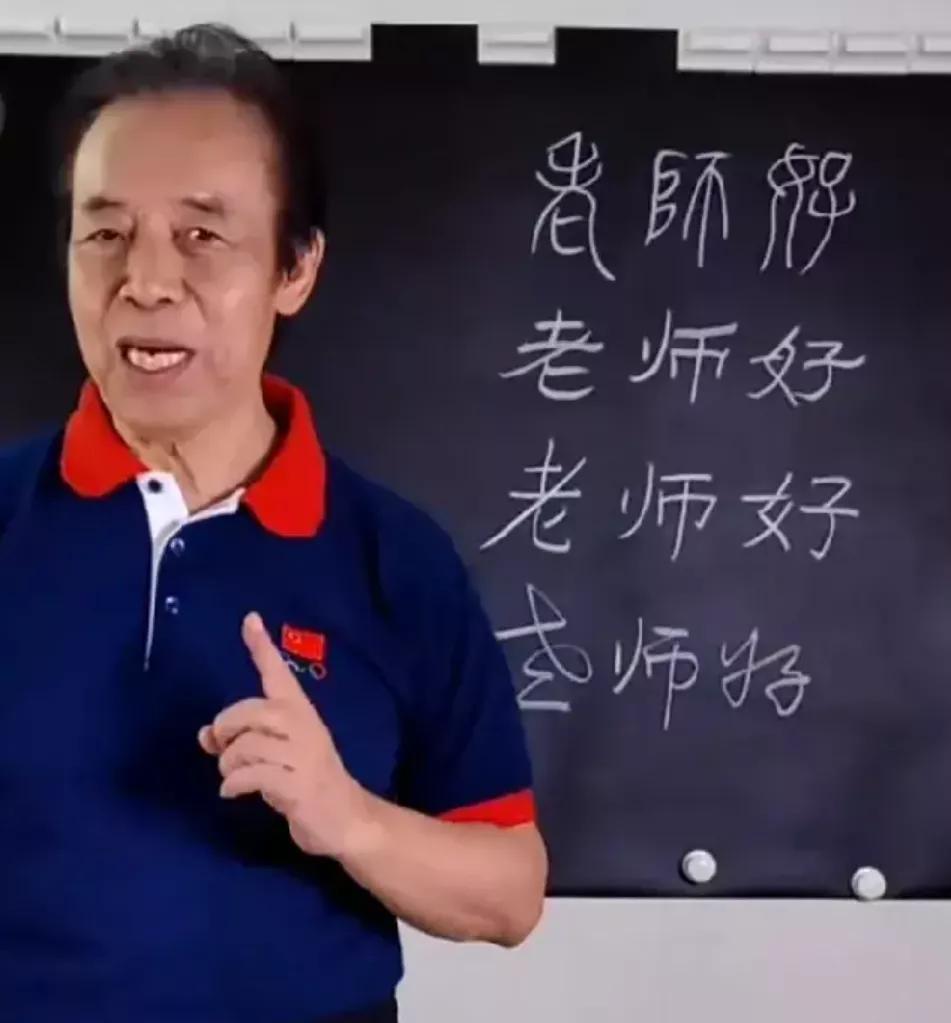 老師好
老师好
老师好
老师好